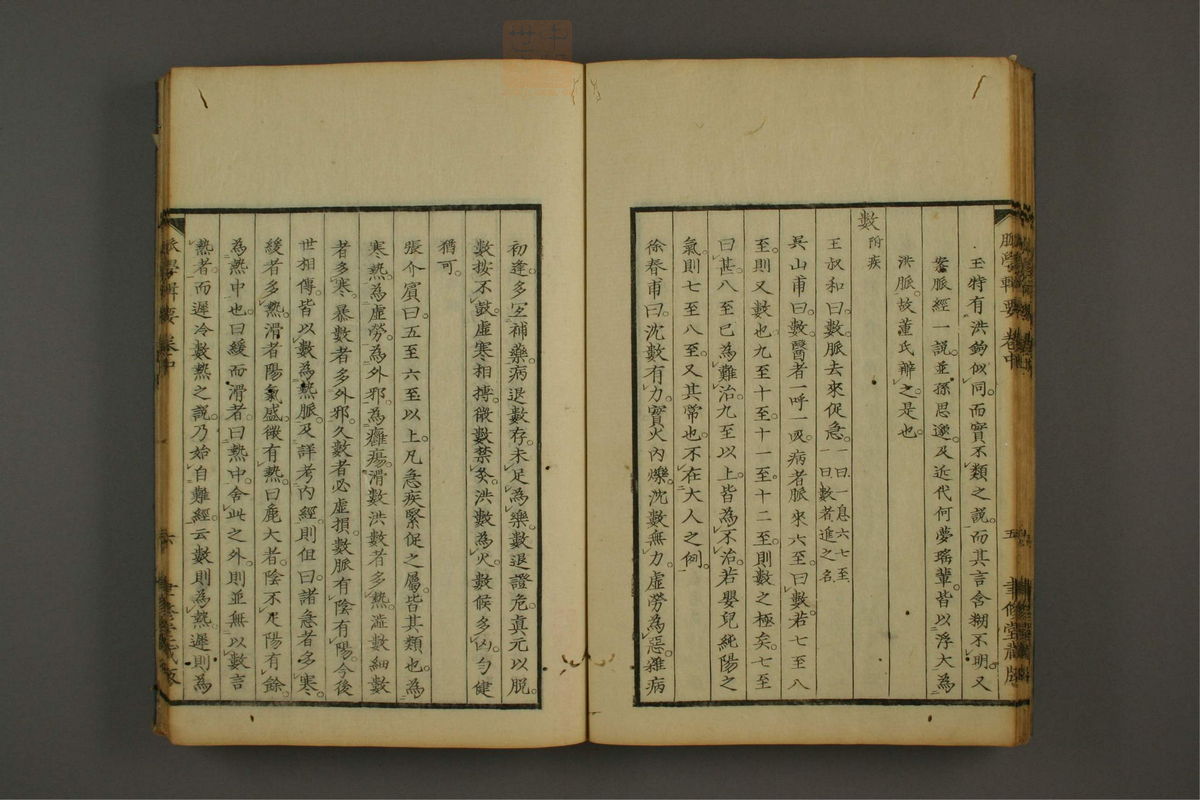 脈學輯要 卷中 五 聿修堂藏版
玉特有洪鉤似同。而實不類之説。而其言含糊不明。又
案脈經一説。並孫思邈。及近代何夢瑤輩。皆以浮大為
洪脈。故董氏辨之。是也。
數 附疾
王叔和曰。數脈去來促急。一曰。一息六七至。一曰。數者進之名。
吳山甫曰。數醫者一呼一吸。病者脈來六至。曰數。若七至八
至。則又數也。九至十至。十一至。十二至。則數之極矣。七至
曰甚。八至已為難治。九至以上。皆為不治。若嬰兒純陽之
氣。則七至八至。又其常也。不在大人之例。
徐春甫曰。沈數有力。實火內爍。沈數無力。虛勞為惡。雜病
初逢。多宜補藥。病退數存。未足為樂。數退證危。真元以脫。
數按不鼓。虛寒相搏。微數禁灸。洪數為火。數候多凶。勻健
猶可。
張介賓曰。五至六至以上。凡急疾緊促之屬。皆其類也。為
寒熱。為虛勞。為外邪。為癰瘍。滑數洪數者多熱。濇數細數
者多寒。暴數者多外邪。久數者必虛損。數脈有陰有陽。今後
世相傳。皆以數為熱脈。及詳考內經。則但曰諸急者多寒。
緩者多熱。滑者陽氣盛。微有熱。曰麤大者。陰不足。陽有餘。
為熱中也。曰緩而滑者。曰熱中。舍此之外。則並無以數言
熱者。而遲冷數熱之說。乃始自難經。云數則為熱。遲則為
脈學輯要 卷中 六 聿修堂藏版